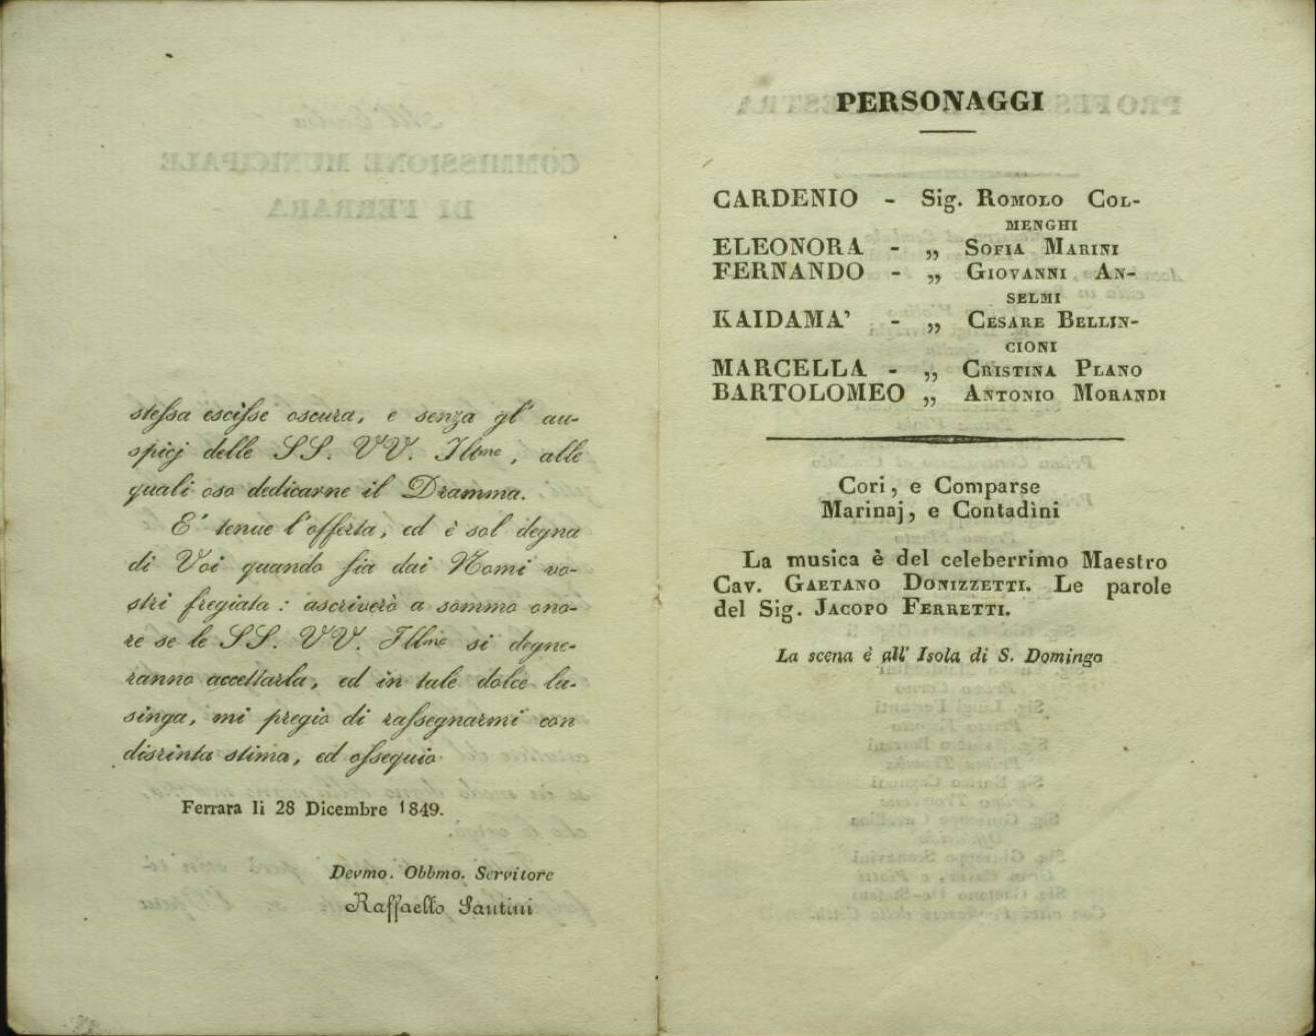 stessa escisse oscura, e senza gl' au-
spicj delle SS. VV. Illme, alle
quali oso dedicarne il Dramma.
E' tenue l'offerta, ed è sol degna
di Voi quando sia dai Nomi vo-
stri fregiata: ascriverò a sommo ono-
re se le SS. VV. Illme si degne-
ranno accettarla, ed in tale dolce lu-
singa, mi pregio di rassegnarmi con
distinta stima, ed ossequio
Ferrara li 28 Dicembre 1849.
Devmo. Obbmo. Servitore
Raffaello Santini
PERSONAGGI
CARDENIO - Sig. ROMOLO COL-
MENGHI
ELEONORA - „ SOFIA MARINI
FERNANDO - „ GIOVANNI AN-
SELMI
KAIDAMA' - „ CESARE BELLIN-
CIONI
MARCELLA - „ CRISTINA PLANO
BARTOLOMEO „ ANTONIO MORANDI
Cori, e Comparse
Marinaj, e Contadini
La musica è del celeberrimo Maestro
Cav. GAETANO DONIZZETTI. Le parole
del Sig. JACOPO FERRETTI.
La scena è all' Isola di S. Domingo